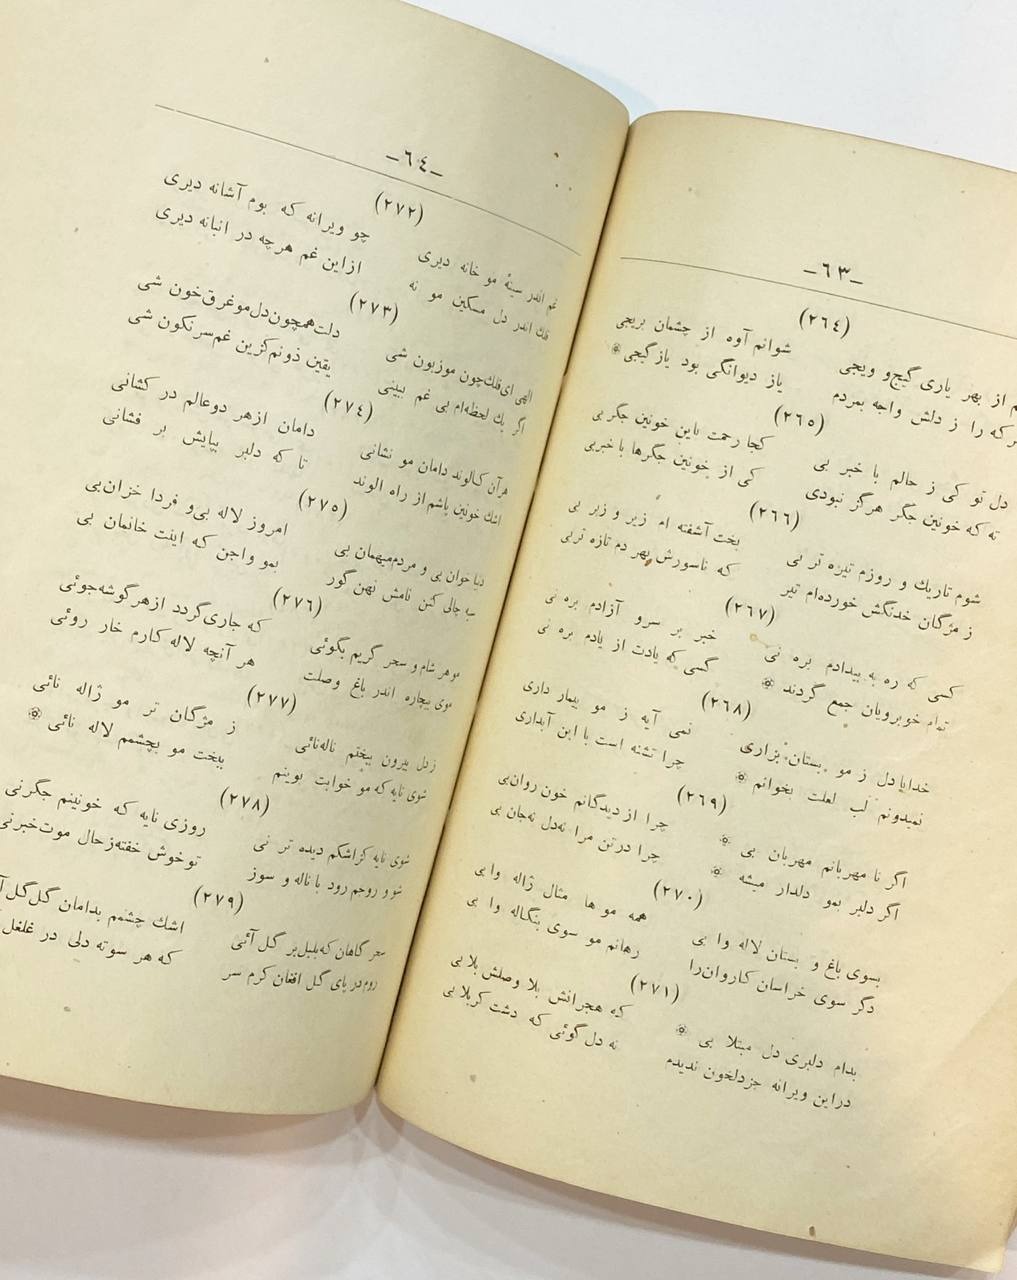 –٦٣–
(٢٦٤)
از بهر یاری گیج و ویجی شوانم آوه از چشمان بریجی
که را ز دلش واجه بمردم یاز دیوانگی بود یاز گیجی
(٢٦٥)
دل تو کی ز حالم با خبر بی کجا رحمت باین خونین جگر بی
ته که خونین جگر هرگز نبودی کی از خونین جگرها با خبربی
(٢٦٦)
شوم تاریك و روزم تیره تر بی بخت آشفته ام زیر و زبر بی
ز مژگان خدنگش خورده‌ام تیر که ناسورش بهر دم تازه تربی
(٢٦٧)
کسی که ره به بیدادم بره نی خبر بر سرو آزادم بره نی
تمام خوبرویان جمع گردند کسی که یادت از یادم بره نی
(٢٦٨)
خدایا دل ز مو بستان بزاری نمی آیه ز مو بیمار داری
نمیدونم لب لعلت بخوانم چرا تشنه است با این آبداری
(٢٦٩)
اگر نا مهربانم مهربان بی چرا از دیدگانم خون روان‌بی
اگر دلبر بمو دلدار میشه چرا درتن مرا نه‌دل نه‌جان بی
(٢٧٠)
بسوی باغ و بستان لاله وا بی همه مو ها مثال ژاله وا بی
دگر سوی خراسان کاروان‌را رهانم مو سوی بنگاله وا بی
(٢٧١)
بدام دلبری دل مبتلا بی که هجرانش بلا وصلش بلا بی
دراین ویرانه جزدلخون ندیدم نه دل گوئی که دشت کربلا بی
–٦٤–
(٢٧٢)
غم اندر سینهٔ مو خانه دیری چو ویرانه که بوم آشانه دیری
فلك اندر دل مسکین مو نه ازاین غم هرچه در انبانه دیری
(٢٧٣)
الهی ای‌فلك‌چون موزبون شی دلت‌همچون‌دل‌موغرق‌خون شی
اگر یك لحظه‌ام بی غم بینی یقین ذونم‌کزین غم‌سرنگون شی
(٢٧٤)
هرآن کالوند دامان مو نشانی دامان ازهر دوعالم در کشانی
اشك خونین پاشم از راه الوند تا که دلبر بپایش بر فشانی
(٢٧٥)
دنیا خوان بی و مردم‌میهمان بی امروز لاله بی‌و فردا خزان‌بی
سیه چالی کنن نامش نهن گور بمو واجن که اینت خانمان بی
(٢٧٦)
موهر شام و سحر گریم بکوئی که جاری‌گردد ازهرگوشه‌جوئی
موی بیچاره اندر باغ وصلت هر آنچه لاله کارم خار روئی
(٢٧٧)
زدل بیرون بیختم ناله‌نائی ز مژگان تر مو ژاله نائی
شوی نایه که مو خوابت بوینم ببخت مو بچشمم لاله نائی
(٢٧٨)
شوی نایه کزاشکم دیده تر نی روزی نایه که خونینم جگرنی
شو و روجم رود با ناله و سوز توخوش خفته‌زحال موت‌خبرنی
(٢٧٩)
سحر گاهان که‌بلبل‌بر گل آئی اشك چشمم بدامان گل‌گل
روم در پای گل افغان کرم سر که هر سوته دلی در غلغل